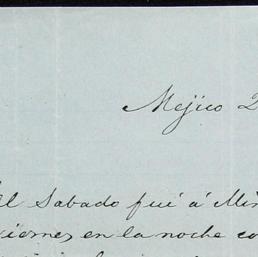 Mejico 2
El Sabado fué á
viernes en la noche co